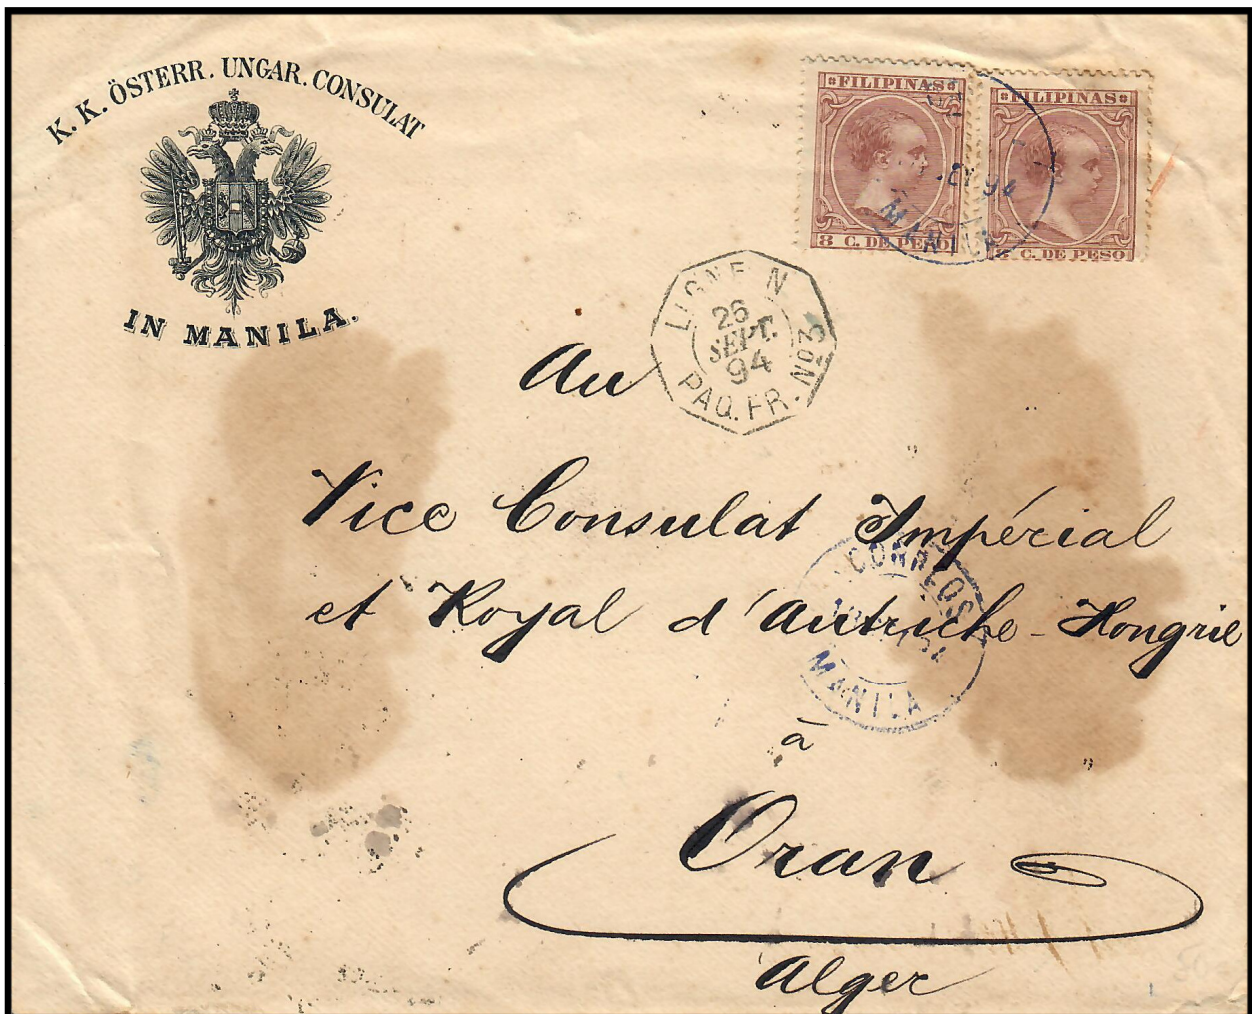 K. K. ÖSTERR. UNGAR. CONSULAT
IN MANILA.
FILIPINAS
8 C. DE PESO
FILIPINAS
8 C. DE PESO
94
MANILA
LIGNE N
26
SEPT.
94
PAQ. FR. Nº
Au
Vice Consulat Impérial
et Royal d'Autriche-Hongrie
CORREOS
MANILA
à
Oran
Alger